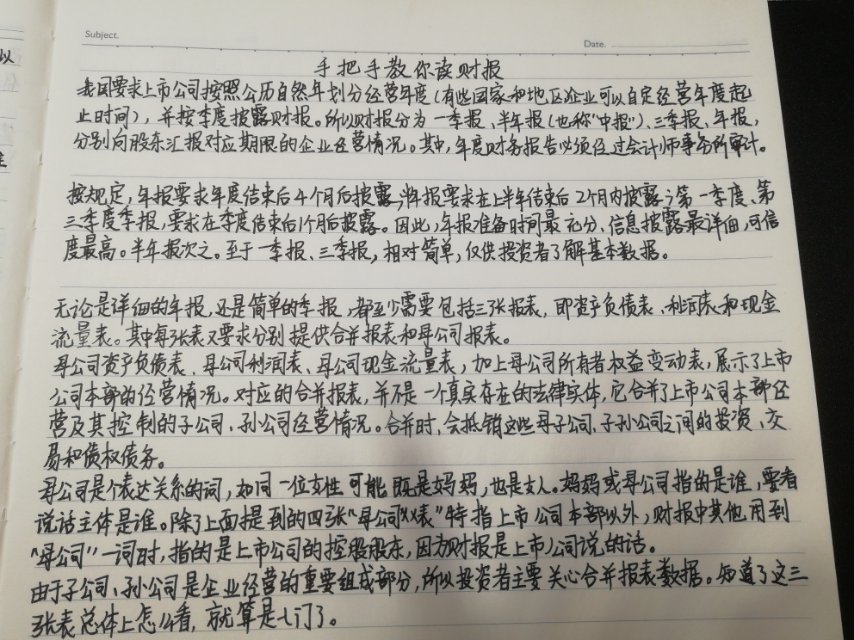 Subject.
Date.
手把手教你读财报
我国要求上市公司按照公历自然年划分经营年度(有些国家和地区企业可以自定经营年度起
止时间),并按季度披露财报。所以财报分为一季报、半年报(也称"中报")、三季报、年报,
分别向股东汇报对应期限的企业经营情况。其中,年度财务报告必须经过会计师事务所审计。
按规定,年报要求年度结束后4个月后披露;半年报要求在上半年结束后2个月内披露;第一季度、第
三季度季报,要求在季度结束后1个月后披露。因此,年报准备时间最充分、信息披露最详细,可信
度最高。半年报次之。至于一季报、三季报,相对简单,仅供投资者了解基本数据。
无论是详细的年报,还是简单的季报,都至少需要包括三张报表,即资产负债表、利润表和现金
流量表。其中每张表又要求分别提供合并报表和母公司报表。
母公司资产负债表、母公司利润表、母公司现金流量表,加上母公司所有者权益变动表,展示了上市
公司本部的经营情况。对应的合并报表,并不是一个真实存在的法律实体,它合并了上市公司本部经
营及其控制的子公司、孙公司经营情况。合并时,会抵销这些母子公司、子孙公司之间的投资、交
易和债权债务。
母公司是个表达关系的词,如同一位女性可能既是妈妈,也是女人。妈妈或母公司指的是谁,要看
说话主体是谁。除了上面提到的四张"母公司XX表"特指上市公司本部以外,财报中其他用到
"母公司"一词时,指的是上市公司的控股股东,因为财报是上市公司说的话。
由于子公司、孙公司是企业经营的重要组成部分,所以投资者主要关心合并报表数据。知道了这三
张表总体上怎么看,就算是入门了。